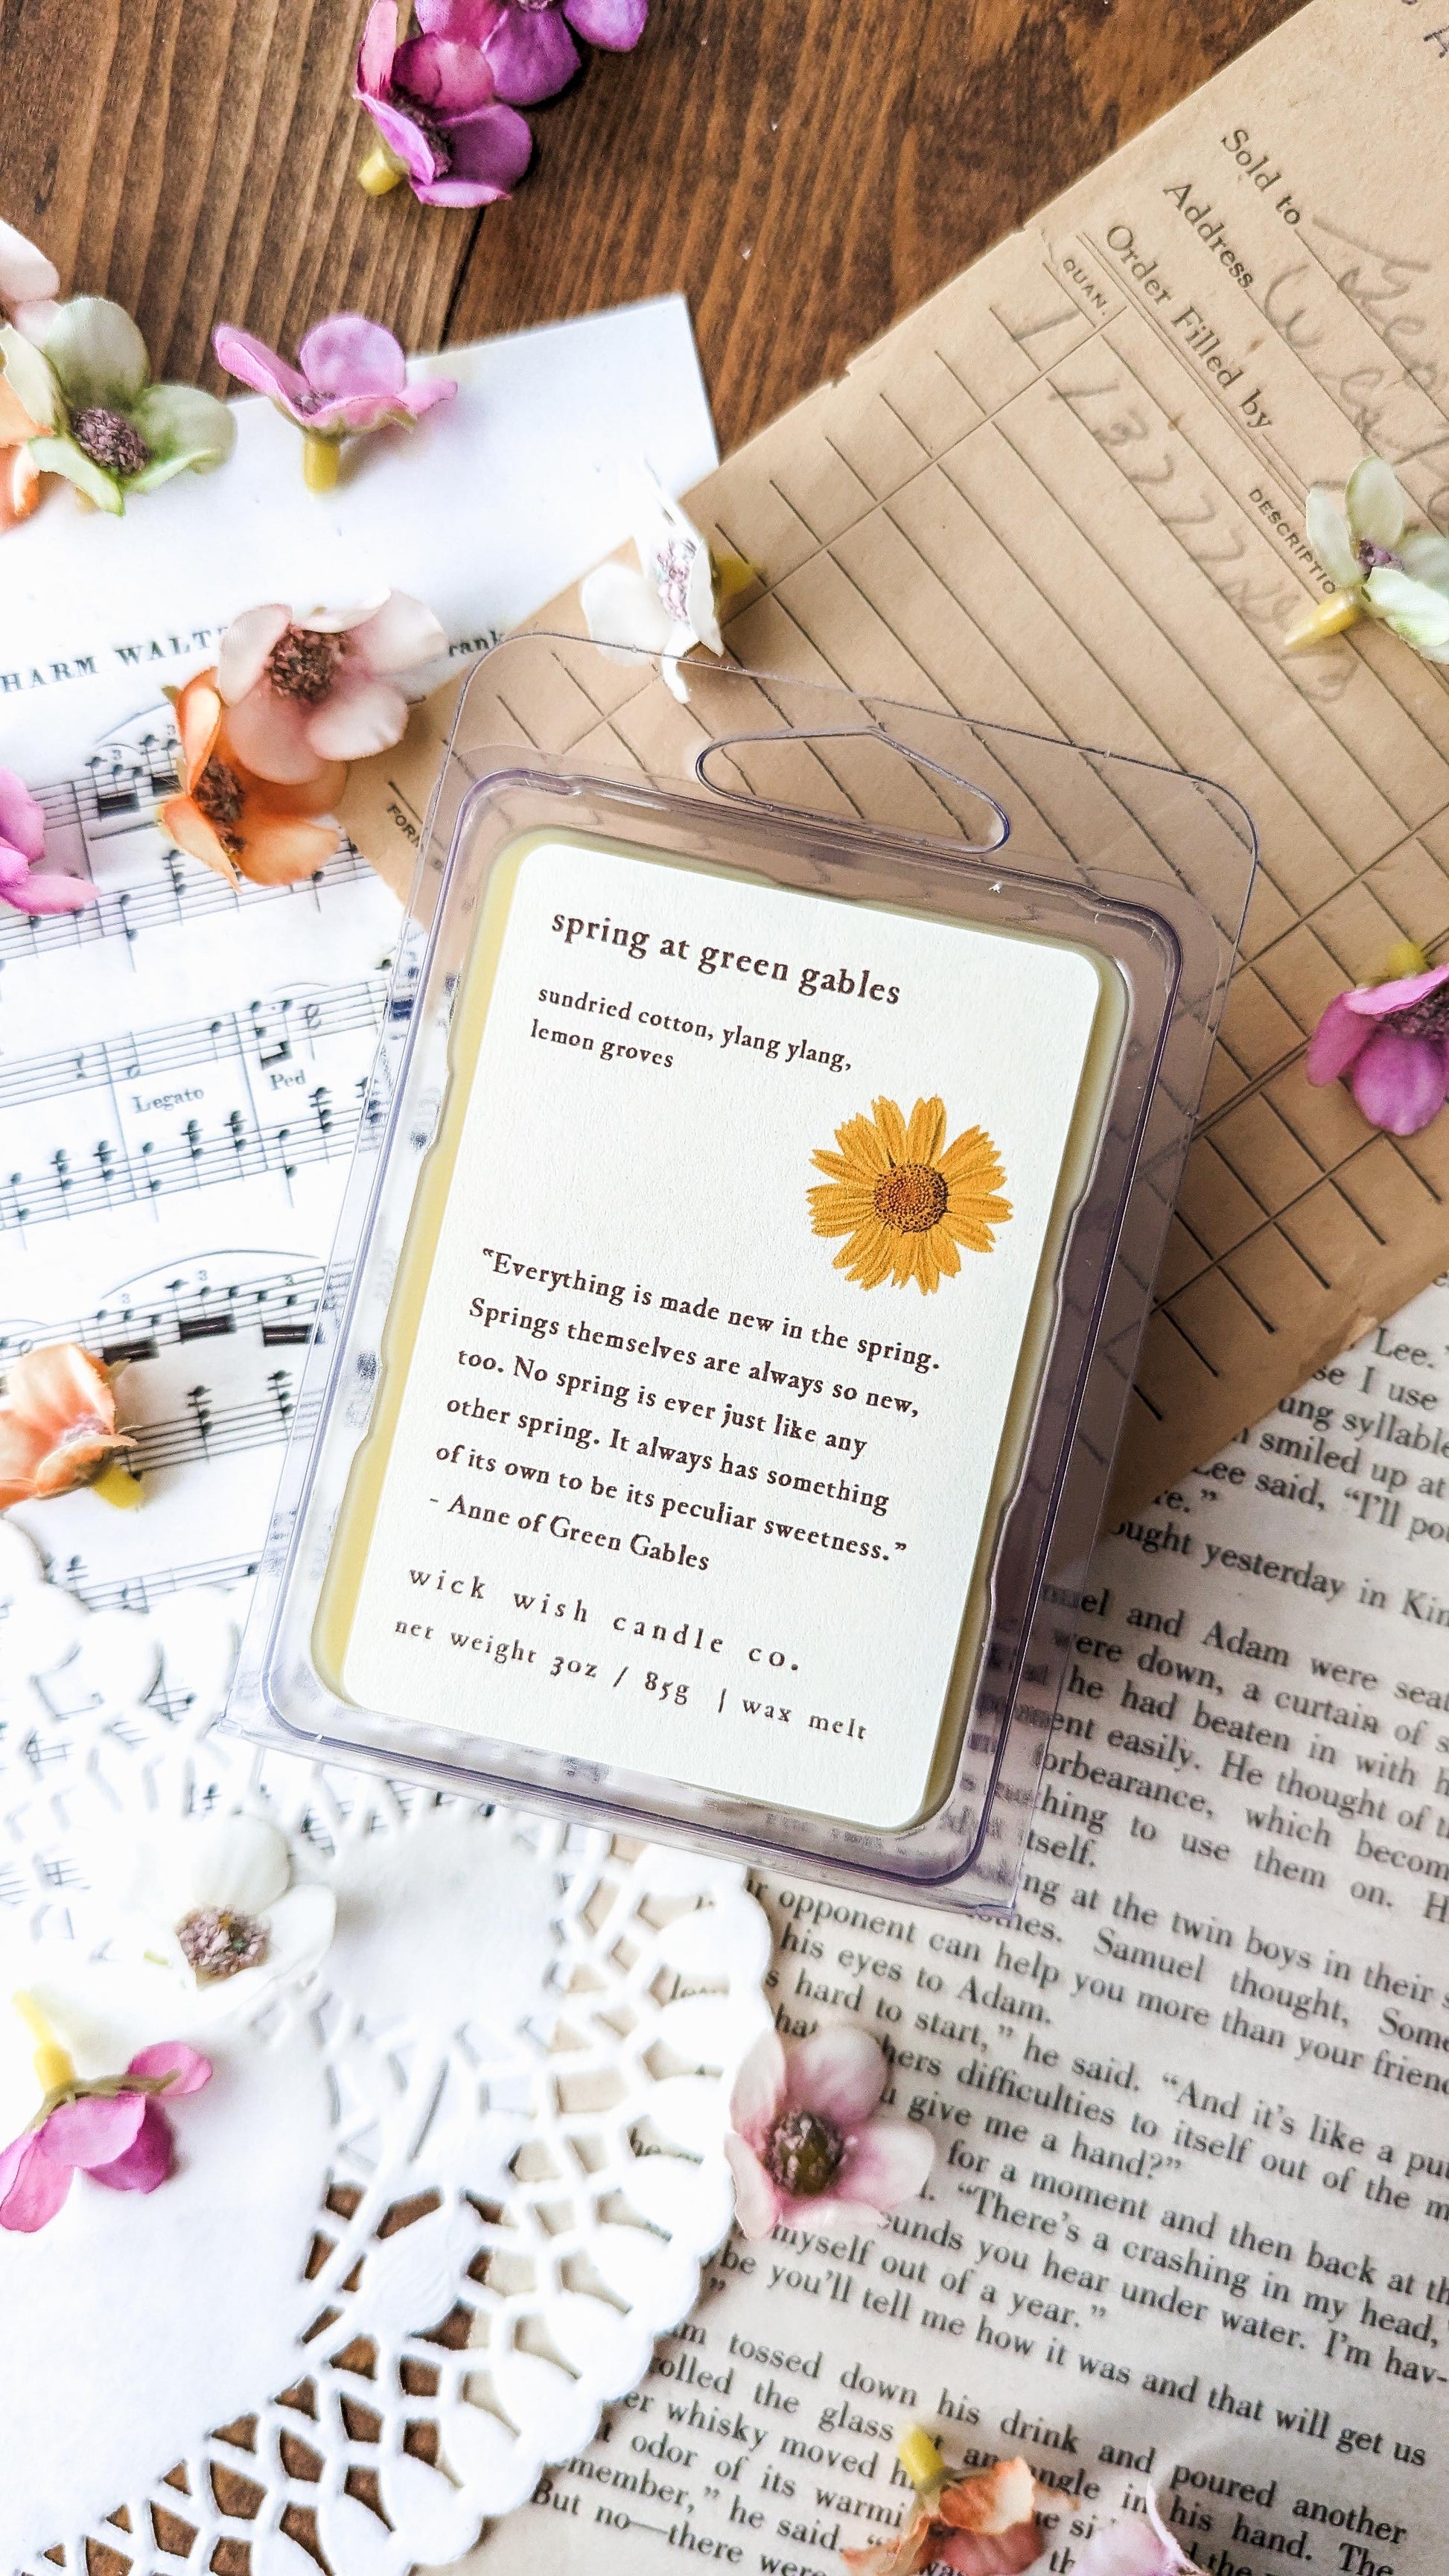 Sold to
Address
Order Filled by
QUAN.
DESCRIPTIO
1
HARM WALT
rank
FORM
Legato
Ped
spring at green gables
sundried cotton, ylang ylang,
lemon groves
“Everything is made new in the spring.
Springs themselves are always so new,
too. No spring is ever just like any
other spring. It always has something
of its own to be its peculiar sweetness.”
- Anne of Green Gables
wick wish candle co.
net weight 3oz / 85g | wax melt
Lee.”
se I use
ung syllable
smiled up at
Lee said, “I’ll po
re.”
ought yesterday in Kin
uel and Adam were sea
ere down, a curtain of s
he had beaten in with h
ent easily. He thought of t
orbearance, which becom
thing to use them on. H
tself.
ng at the twin boys in their s
othes. Samuel thought, Some
opponent can help you more than your friend
his eyes to Adam.
s hard to start,” he said. “And it’s like a pu
hers difficulties to itself out of the m
u give me a hand?”
for a moment and then back at th
“There’s a crashing in my head,
ounds you hear under water. I’m hav-
myself out of a year.”
be you’ll tell me how it was and that will get us
”
m tossed down his drink and poured another
olled the glass at an angle in his hand. The
er whisky moved h
t odor of its warmi
member,” he said.
But no—there were